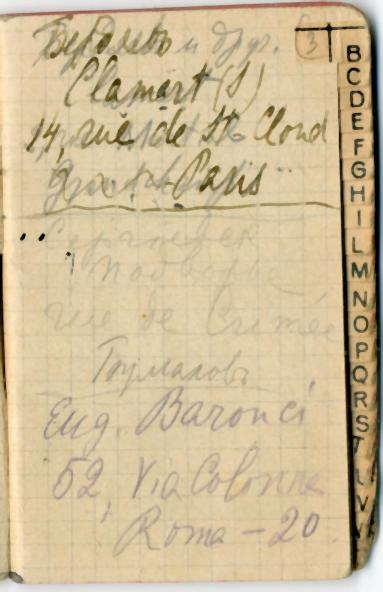 Бердяевъ и друг. 3
Clamart (S)
14, rue de St. Cloud
Paris
Сергиевск
Подворье
rue de Crimée
Eug. Baronci
52, Via Colonna
Roma - 20
B
C
D
E
F
G
H
I
L
M
N
O
P
Q
R
S
T
U
V
W